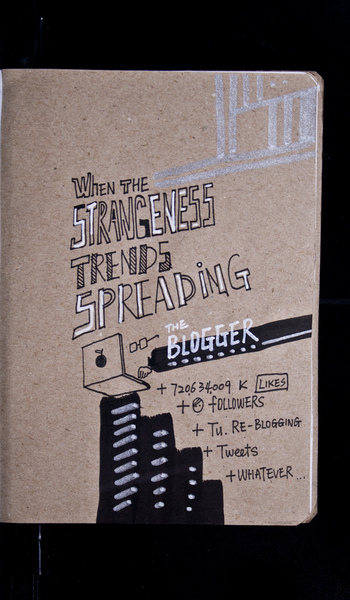 WHEN THE
STRANGENESS
TRENDS
SPREADING
THE
BLOGGER
+ 720634009 K LIKES
+ @ fOLLOWERS
+ Tu. RE-BLOGGING
+ Tweets
+ WHATEVER ...